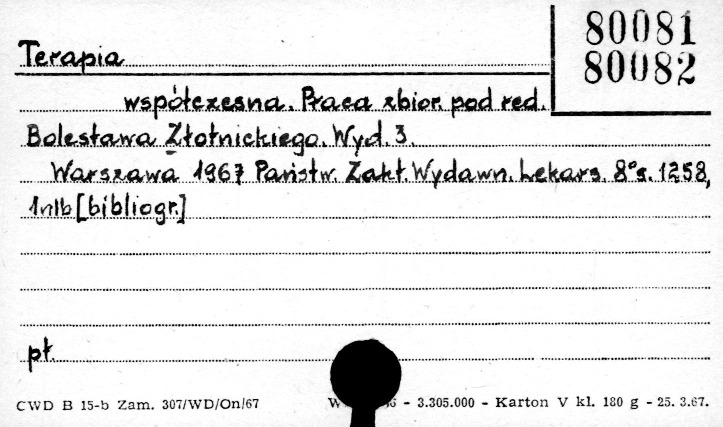 80081
80082
Terapia
współczesna. Praca zbior. pod red.
Bolesława Złotnickiego. Wyd. 3.
Warszawa 1967 Państw. Zakł. Wydawn. Lekars. 8° s. 1258,
1nlb [bibliogr.]
pł.
CWD B 15-b Zam. 307/WD/On/67 - 3.305.000 - Karton V kl. 180 g - 25. 3.67.